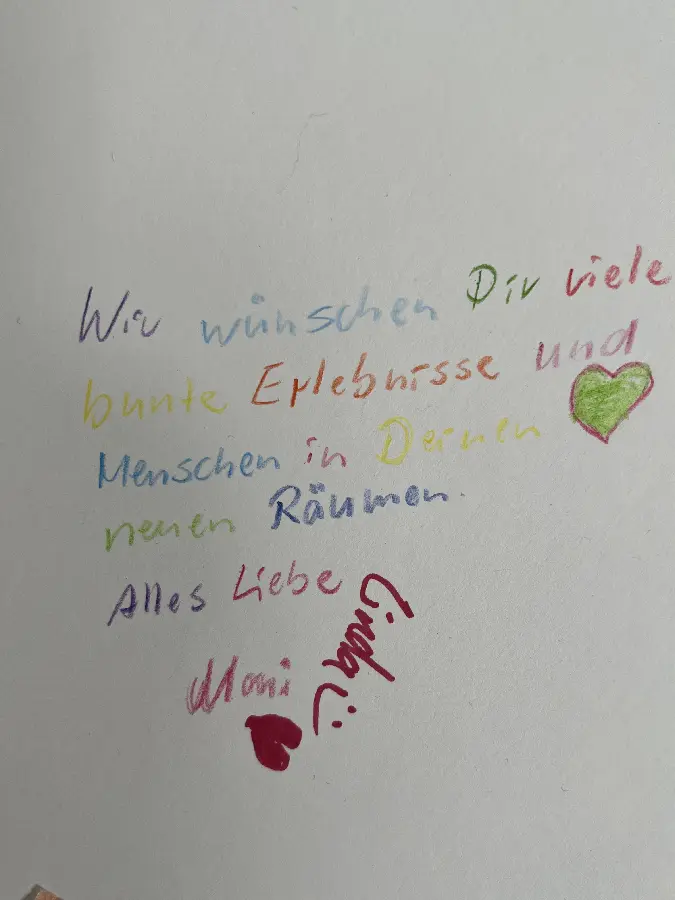 Wir wünschen Dir viele
bunte Erlebnisse und
Menschen in Deinen
neuen Räumen.
Alles Liebe
Linda
Moni